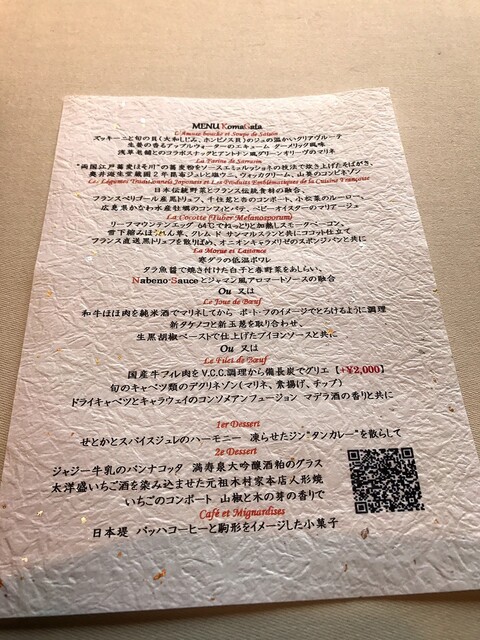 MENU KomaGata
L'Amuse bouche et Soupe de Saison
ズッキーニと旬の貝(大和しじみ、ホンビノス貝)のジュの温かいクリアヴルーテ
生姜の香るアップルウォーターのエキューム ターメリック風味
浅草老舗とのコラボスナックとアンドトン風グリーンオリーヴのマリネ
La Farine de Sarrasin
"両国江戸蕎麦ほそ川"の蕎麦粉をソースエミュルッショネの技法で炊き上げたそばがき、
奥井海生堂蔵囲2年昆布ジュレと塩ウニ、ヴォッカクリーム、山葵のコンビネゾン
Les Légumes Traditionnels Japonais et Les Produits Emblématiques de la Cuisine Française
日本伝統野菜とフランス伝統食材の融合、
フランスペリゴール産黒トリュフ、千住葱と杏のコンポート、小松菜のルーロー、
広島県かなわ水産牡蠣のコンフィとパテ、ベビーオイスターのマリアージュ
La Cocotte (Tuber Melanosporum)
リーフマウンテンエッグ 64℃でねっとりと加熱しスモークベーコン、
雪下縮みほうれん草、クレム・ド サンマルスランと共にココット仕立て
フランス直送黒トリュフを散りばめ、オニオンキャラメリゼのスポンジパンと共に
La Morue et Laitance
寒ダラの低温ポワレ
タラ魚醤で焼き付けた白子と春野菜をあしらい、
Nabeno-Sauceとジャマン風アロマートソースの融合
Ou 又は
Le Joue de Bœuf
和牛ほほ肉を純米酒でマリネしてから ポ・ト・フのイメージでとろけるように調理
新タケノコと新玉葱を取り合わせ、
生黒胡椒ペーストで仕上げたブイヨンソースと共に
Ou 又は
Le Filet de Bœuf
国産牛フィレ肉をV.C.C.調理から備長炭でグリエ【+¥2,000】
旬のキャベツ類のデクリネゾン(マリネ、素揚げ、チップ)
ドライキャベツとキャラウェイのコンソメアンフュージョン マデラ酒の香りと共に
1er Dessert
せとかとスパイスジュレのハーモニー 凍らせたジン"タンカレー"を散らして
2e Dessert
ジャージー牛乳のパンナコッタ 満寿泉大吟醸酒粕のグラス
太平盛いちご酒を染み込ませた元祖木村家本店人形焼
いちごのコンポート 山椒と木の芽の香りで
Café et Mignardises
日本堤 バッハコーヒーと駒形をイメージした小菓子